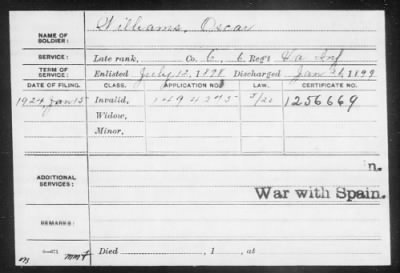 NAME OF SOLDIER: Williams, Oscar
SERVICE: Late rank, Co. C, 6 Reg't Va Inf
TERM OF SERVICE: Enlisted July 12, 1898 Discharged Jan 26, 1899
DATE OF FILING. CLASS. APPLICATION NO. LAW. CERTIFICATE NO.
1924 Jan 15 Invalid, 1494375 5/20 1256669
Widow,
Minor,
ADDITIONAL SERVICES:
n.
War with Spain.
REMARKS:
Died , 1 , at